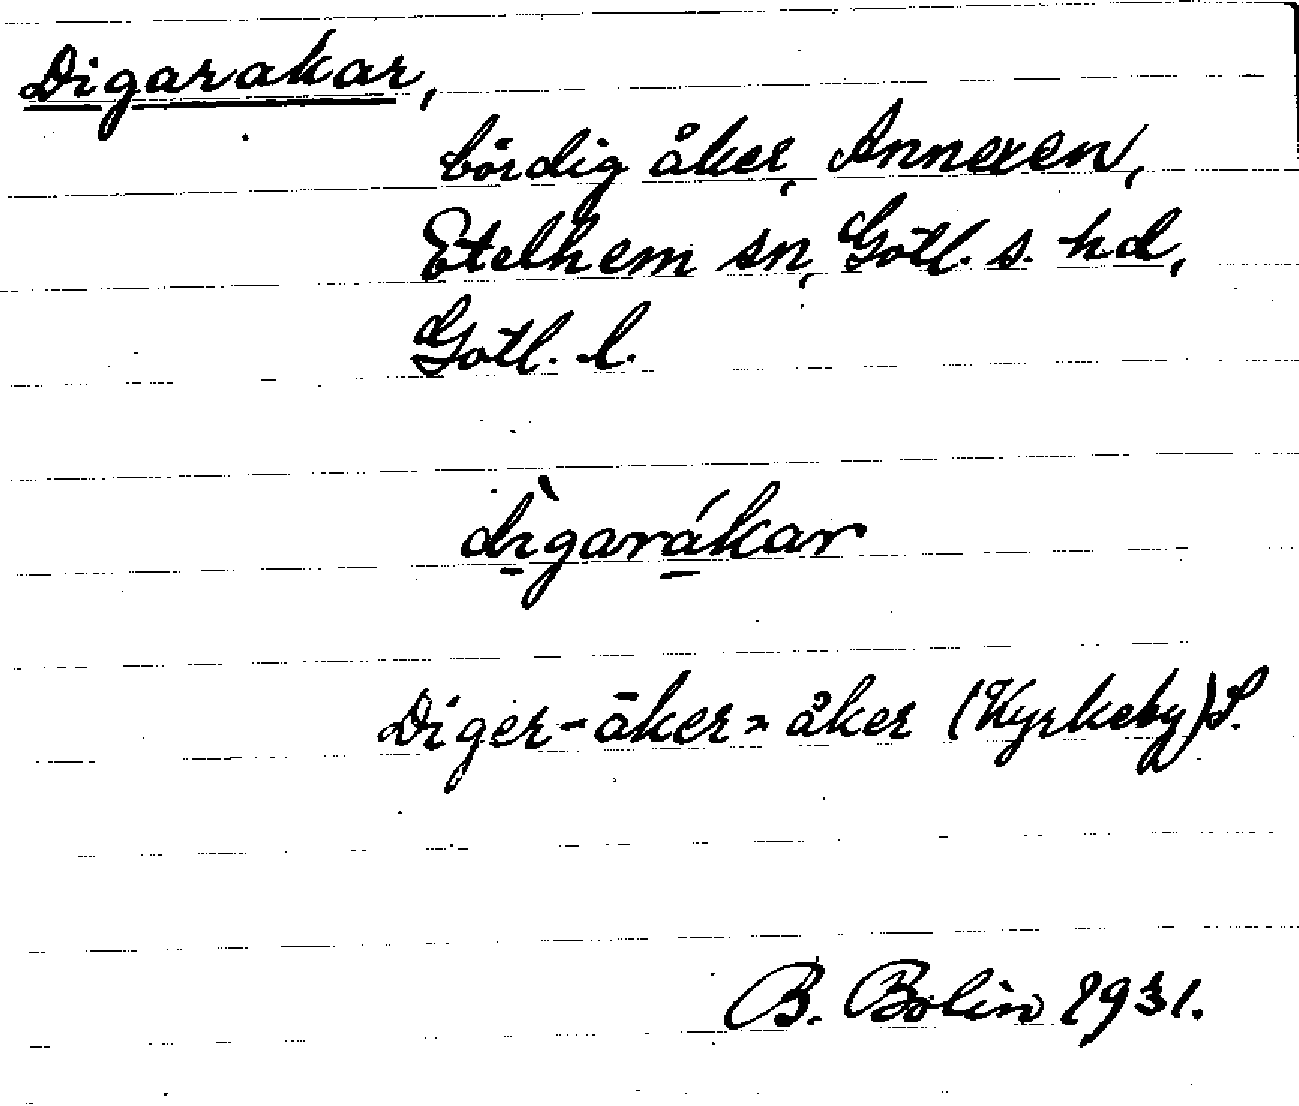 Digarakar,
bördig åker, Annexen,
Etelhem sn, Gotl. s. hd,
Gotl. l.
dìgarákar
Diger-åker = åker (Kyrkeby) S.
B. Bolin 1931.